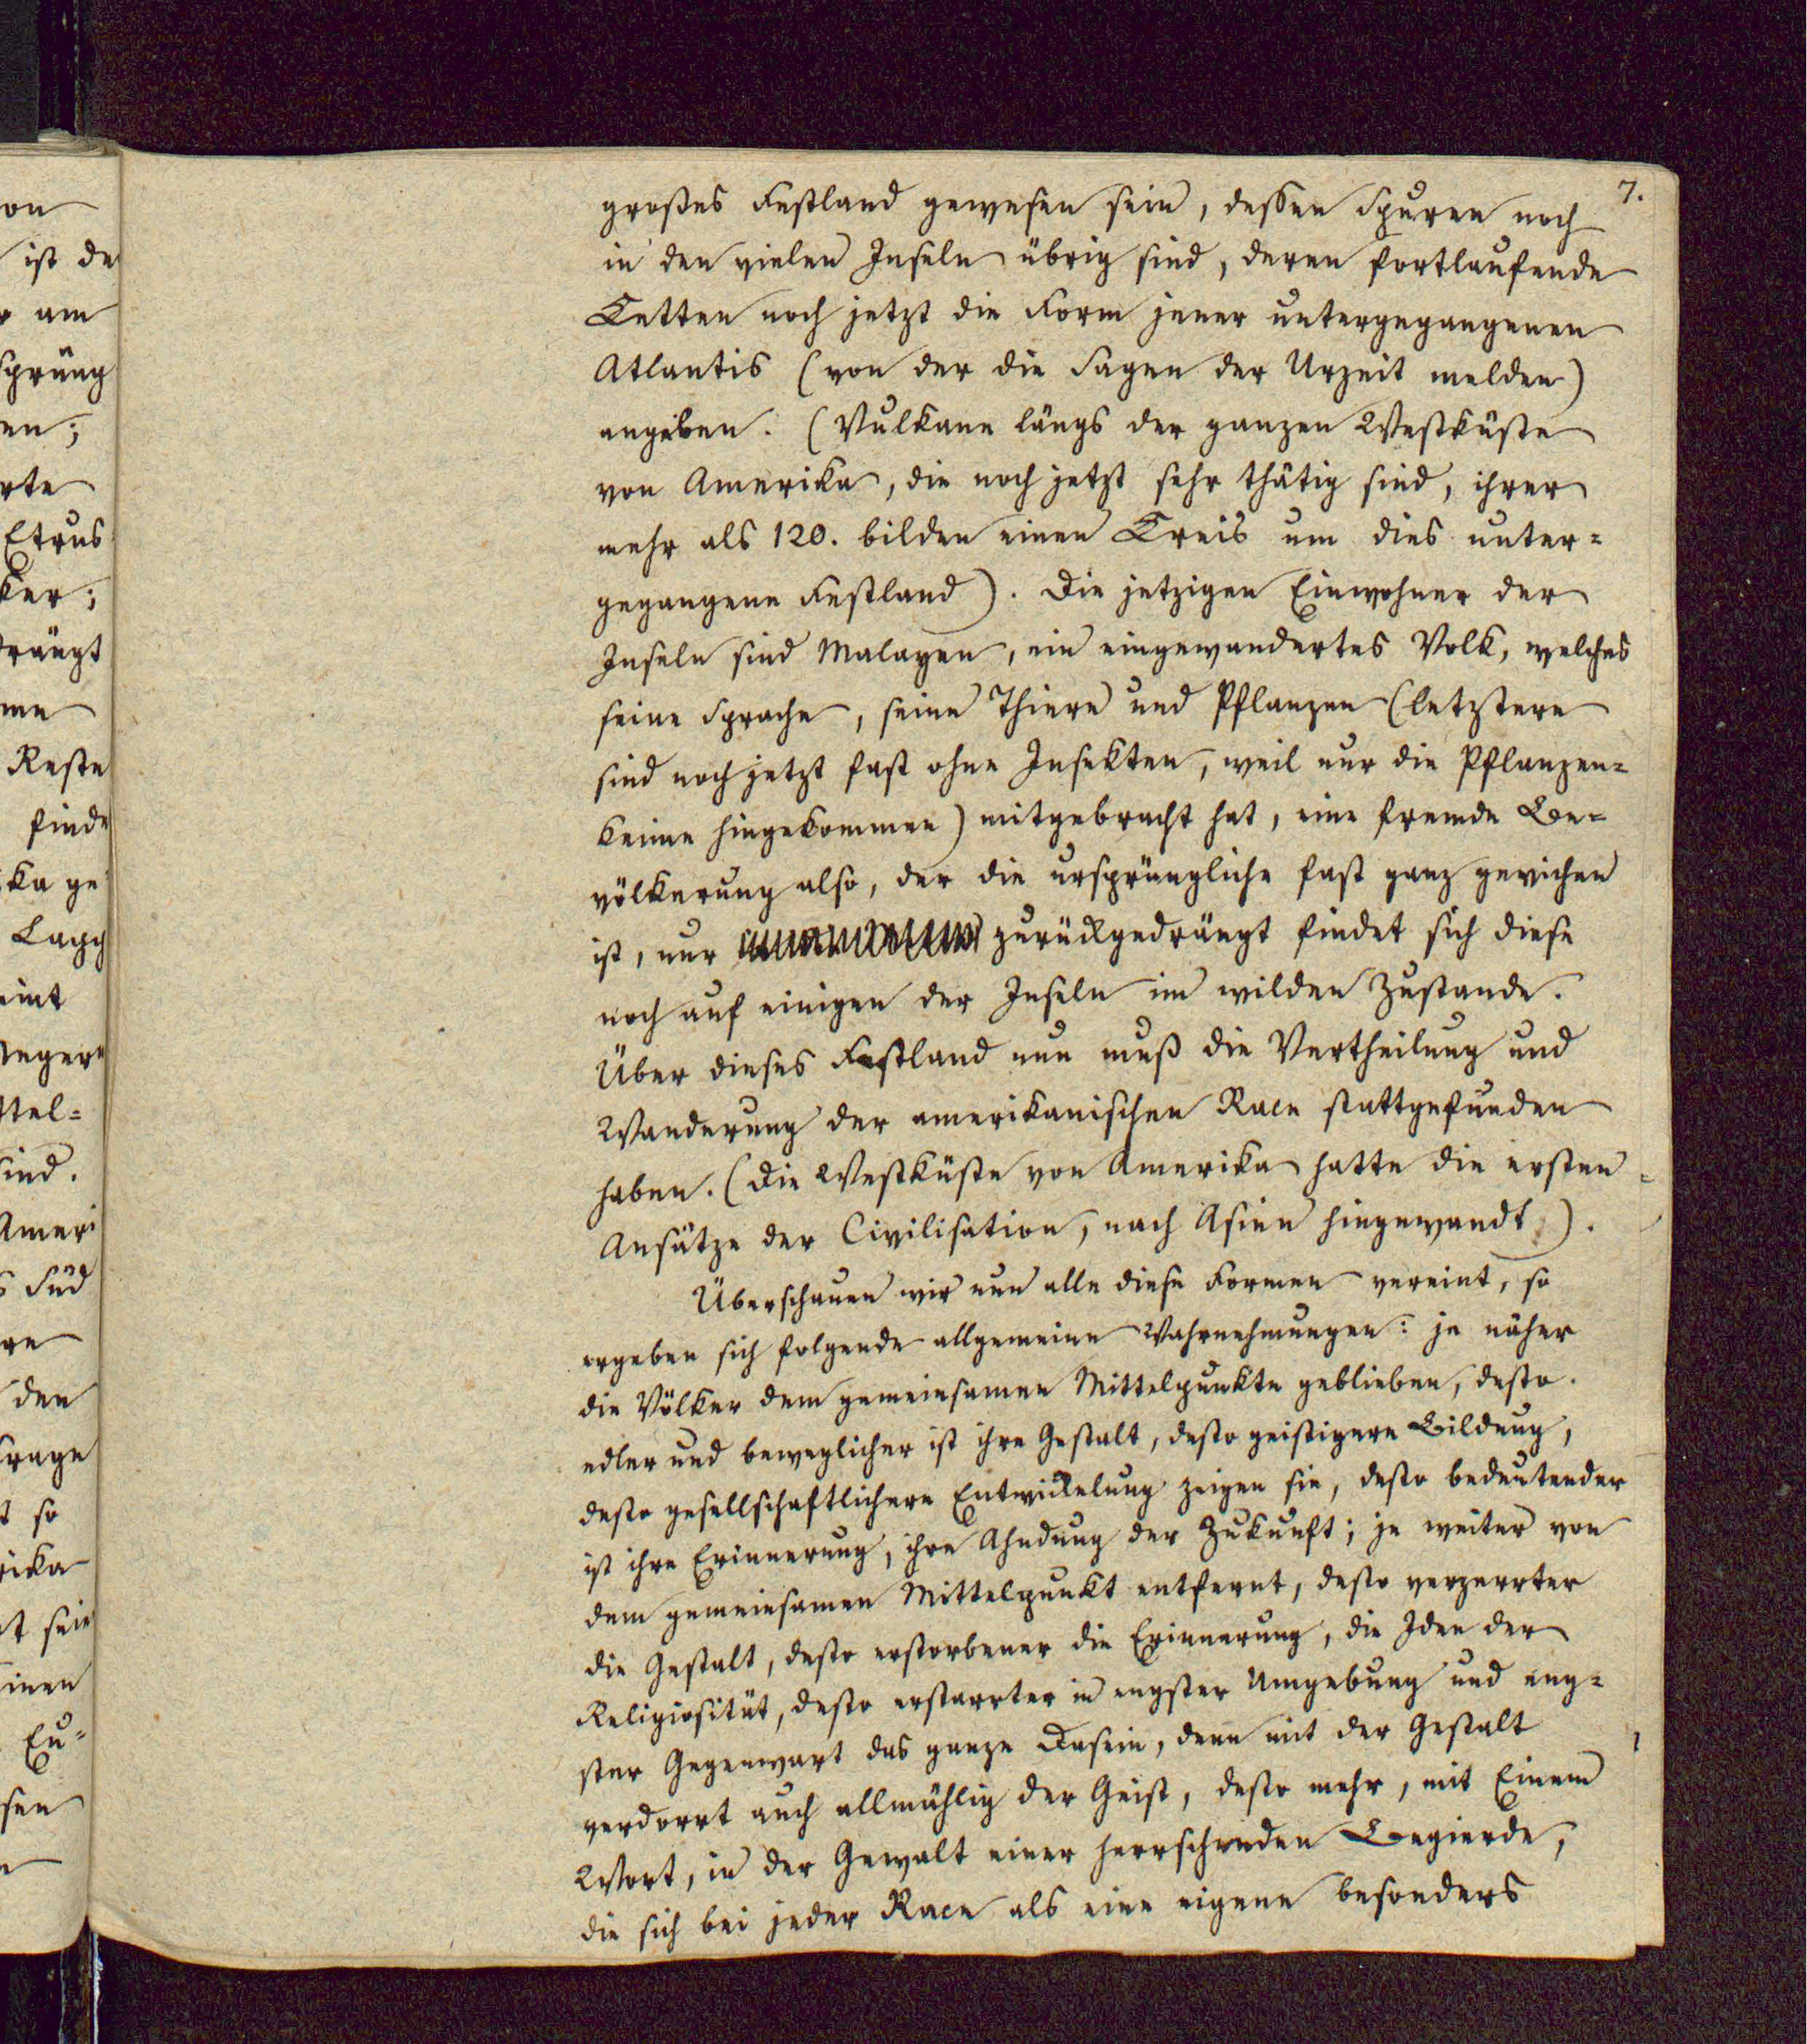 7.
großes Festland gewesen sein, dessen Spuren noch
in den vielen Inseln übrig sind, deren fortlaufende
Ketten noch jetzt die Form jener untergegangenen
Atlantis (von der die Sagen der Urzeit melden)
angeben. (Vulkane längs der ganzen Westküste
von Amerika, die noch jetzt sehr thätig sind, ihrer
mehr als 120. bilden einen Kreis um dies unter-
gegangene Festland). Die jetzigen Einwohner der
Inseln sind Malayen, ein eingewandertes Volk, welches
seine Sprache, seine Thiere und Pflanzen (letztere
sind noch jetzt fast ohne Insekten, weil nur die Pflanzen-
keime hingekommen) mitgebracht hat, eine fremde Be-
völkerung also, der die ursprüngliche fast ganz gewichen
ist, nur zurückgedrängt findet sich diese
noch auf einigen der Inseln im wilden Zustande.
Über dieses Festland nun muß die Vertheilung und
Wanderung der amerikanischen Race stattgefunden
haben. (Die Westküste von Amerika hatte die ersten
Ansätze der Civilisation, nach Asien hingewandt).
Überschauen wir nun alle diese Formen vereint, so
ergeben sich folgende allgemeine Wahrnehmungen: je näher
die Völker dem gemeinsamen Mittelpunkte geblieben, desto
edler und beweglicher ist ihre Gestalt, desto geistigere Bildung,
desto gesellschaftlichere Entwickelung zeigen sie, desto bedeutender
ist ihre Erinnerung, ihre Ahndung der Zukunft; je weiter von
dem gemeinsamen Mittelpunkt entfernt, desto verzerrter
die Gestalt, desto erstorbener die Erinnerung, die Idee der
Religiosität, desto erstarrter in engster Umgebung und eng-
ster Gegenwart das ganze Dasein, denn mit der Gestalt
verdorrt auch allmählig der Geist, desto mehr, mit Einem
Wort, in der Gewalt einer herrschenden Begierde,
die sich bei jeder Race als eine eigene besonders